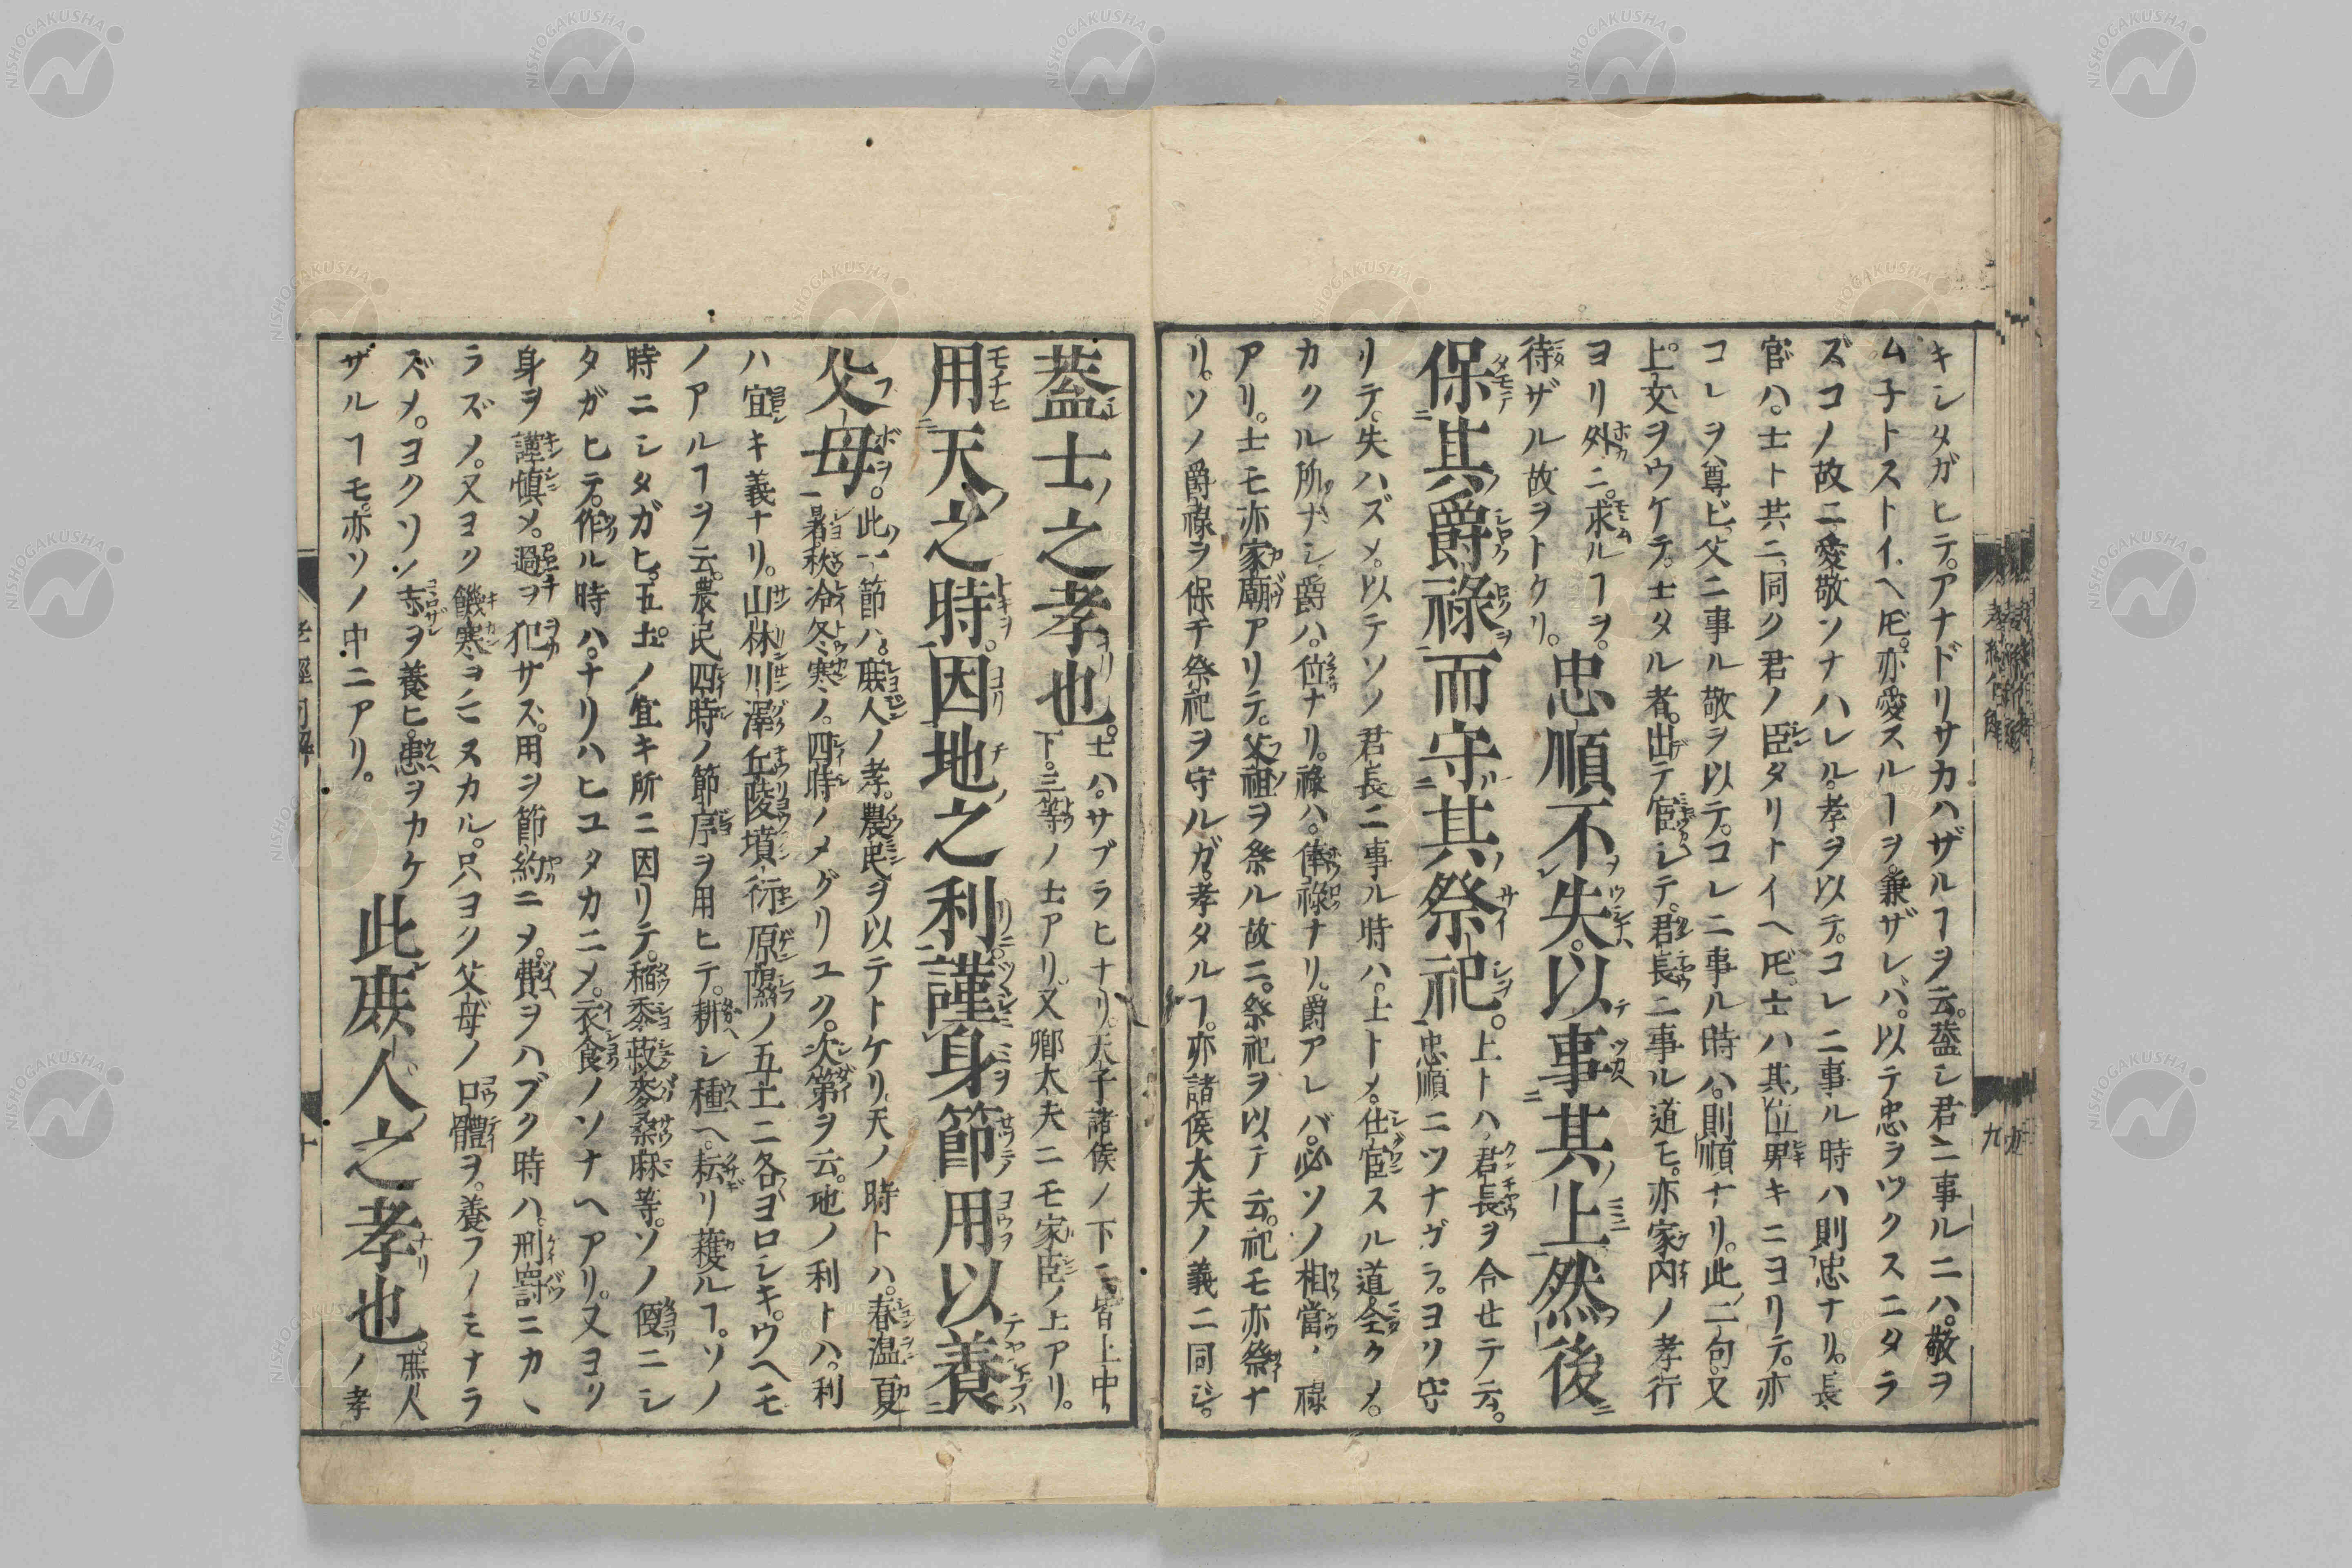 キシタガヒテ。アナドリサカハザルヿヲ云。蓋シ君ニ事ルニハ。敬ヲ
ム子トストイヘ𪜈。亦愛スルヿヲ。兼ザレバ。以テ忠ヲツクスニタラ
ズコノ故ニ愛敬ソナハレル。孝ヲ以テ。コレニ事ル時ハ則忠ナリ。長
官ハ。士ト共ニ同ク君ノ臣タリトイヘ𪜈。士ハ其位卑キニヨリテ。亦
コレヲ尊ビ。父ニ事ル敬ヲ以テ。コレニ事ル時ハ。則順ナリ。此二句。又
上文ヲウケテ。士タル者。出テ宦シテ。君長ニ事ル道ヒ。亦家内ノ孝行
ヨリ外ニ。求ルヿヲ。忠順不失。以事其上然後
待ザル故ヲトケリ。
保其爵祿而守其祭祀。上トハ君長ヲ合セテ云。
忠順ニツナガラ。ヨリ守
リテ。失ハズメ。以テソノ君長ニ事ル時ハ。上トメ。仕宦スル道全クメ。
カクル所ナシ。爵ハ。位ナリ。祿ハ。俸祿ナリ。爵アレバ。必ソノ相當ノ祿
アリ。士モ亦家廟アリテ。父祖ヲ祭ル故ニ。祭祀ヲ以テ云。祀モ亦祭ナ
リ。ソノ爵祿ヲ保チ祭祀ヲ守ルガ。孝タルヿ。亦諸侯大夫ノ義ニ同シ。
孝經句解
九
蓋士之孝也。士ハ。サブラヒナリ。天子諸侯ノ下ニ皆上中
下。三等ノ士アリ。又卿大夫ニモ家臣ノ上アリ。
用天之時。因地之利。謹身節用以養
父母。此一節ハ。庶人ノ孝。農民ヲ以テトケリ。天ノ時トハ。春温夏
暑秋冷冬寒ノ。四時ノメグリユク。次第ヲ云。地ノ利トハ。利
ハ宜キ義ナリ。山林川澤丘陵墳衍原隰ノ五土ニ各ヨロシキ。ウヘモ
ノアルヿヲ云。農民四時ノ節序ヲ用ヒテ。耕シ種ヘ。耘リ穫ルヿ。ソノ
時ニシタガヒ。五土ノ宜キ所ニ因リテ。稻黍菽麥桑麻等。ソノ便ニシ
タガヒテ。作ル時ハ。ナリハヒユタカニメ。衣食ノソナヘアリ。又ヨク
身ヲ謹慎メ。過ヲ犯サズ。用ヲ節約ニメ。費ヲハブク時ハ。刑罸ニカヽ
ラズメ。又ヨク饑寒ヲマヌカル。只ヨク父母ノ口體ヲ。養フノミナラ
ズメ。ヨクソノ志ヲ養ヒ。患ヲカケ
ザルヿモ。亦ソノ中ニアリ。
此庶人之孝也。庶人
ノ孝
十